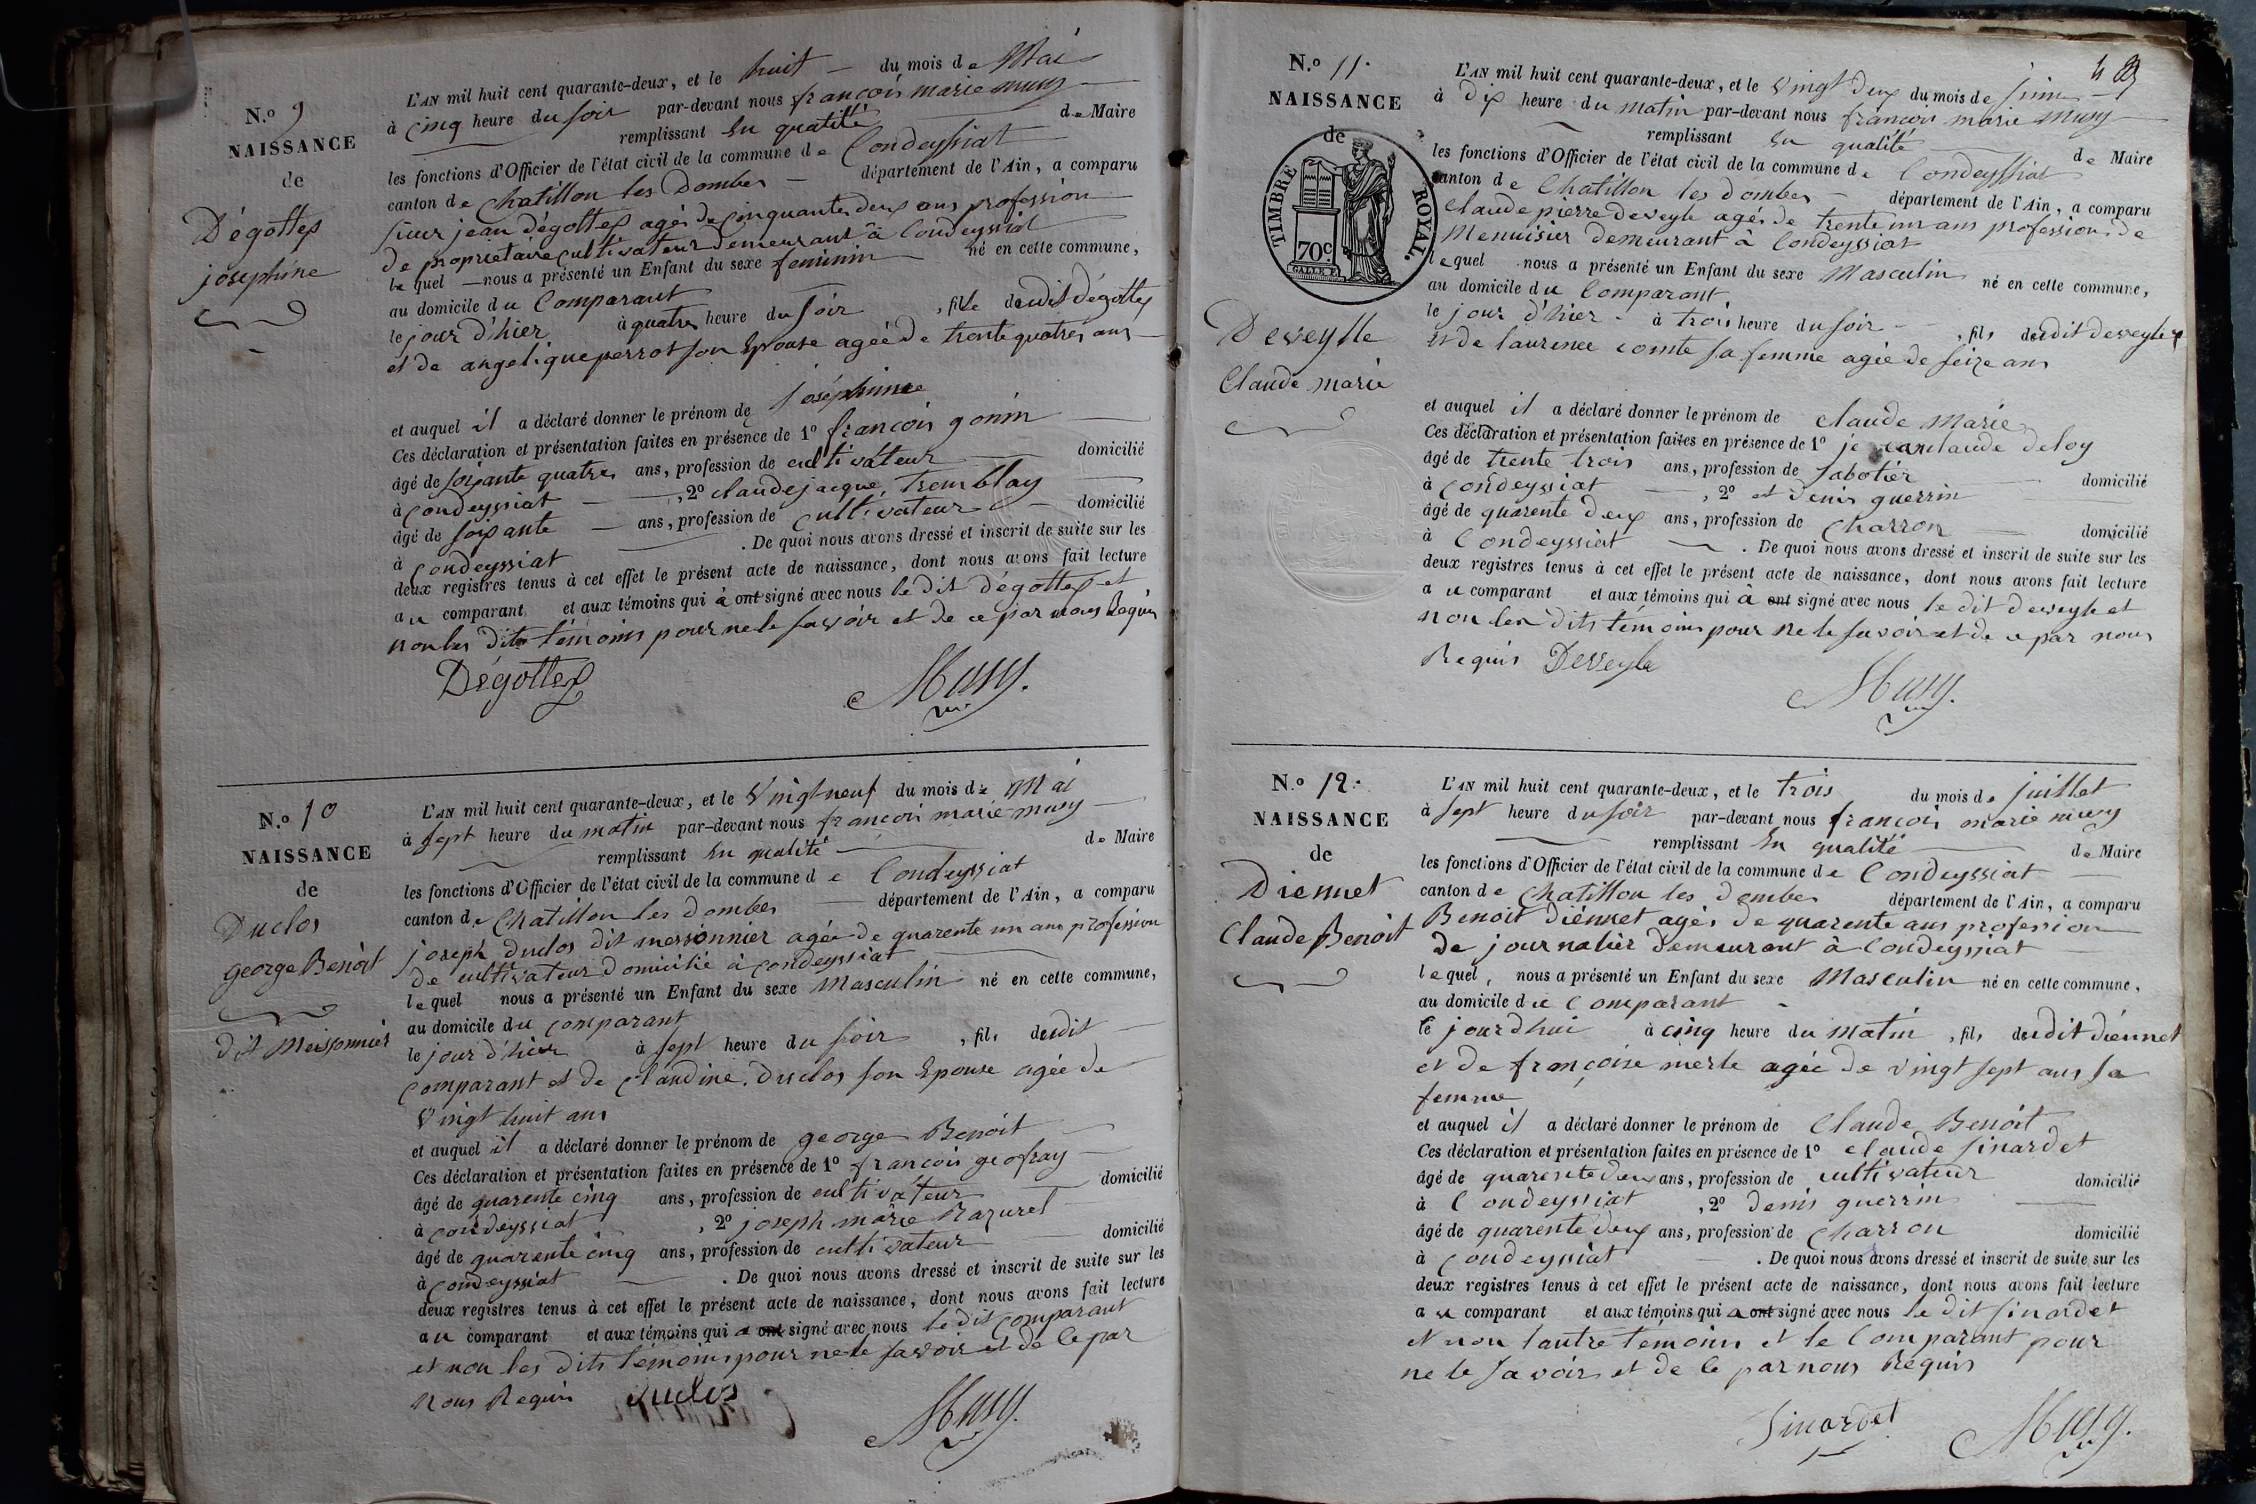 N.º 9
NAISSANCE
de
Dégottex
joséphine
L'AN mil huit cent quarante-deux, et le huit du mois de Mai
à cinq heure du soir par-devant nous françois marie musy
remplissant En qualité de Maire
les fonctions d'Officier de l'état civil de la commune de Condeyssiat
canton de Chatillon les Dombes département de l'Ain, a comparu
sieur jean dégottex agé de cinquante deux ans profession
de propriétaire cultivateur demeurant à Condeyssiat
lequel nous a présenté un Enfant du sexe feminin né en cette commune,
au domicile du Comparant
le jour d'hier à quatre heure du soir, fille dudit dégottex
et de angelique perrot son Epouse agée de trente quatre ans
et auquel il a déclaré donner le prénom de joséphine
Ces déclaration et présentation faites en présence de 1º françois gonin
âgé de soixante quatre ans, profession de cultivateur domicilié
à Condeyssiat, 2º claude jacque tremblay
âgé de soixante ans, profession de cultivateur domicilié
à Condeyssiat. De quoi nous avons dressé et inscrit de suite sur les
deux registres tenus à cet effet le présent acte de naissance, dont nous avons fait lecture
au comparant et aux témoins qui à ont signé avec nous le dit dégottex et
non les dits témoins pour ne le savoir et de ce par nous Requis
Dégottex Musy.
N.º 10
NAISSANCE
de
Duclos
george Benoit
dit Meissonnier
L'AN mil huit cent quarante-deux, et le Vingt neuf du mois de Mai
à sept heure du matin par-devant nous françois marie musy
remplissant En qualité de Maire
les fonctions d'Officier de l'état civil de la commune de Condeyssiat
canton de Chatillon les Dombes département de l'Ain, a comparu
joseph Duclos dit messonnier agée de quarente un ans profession
de cultivateur domicilié à condeyssiat
lequel nous a présenté un Enfant du sexe Masculin né en cette commune,
au domicile du comparant
le jour d'hier à sept heure du soir, fils dudit
comparant et de Claudine Duclos son Epouse agée de
Vingt huit ans
et auquel il a déclaré donner le prénom de george Benoit
Ces déclaration et présentation faites en présence de 1º françois geofray
âgé de quarente cinq ans, profession de cultivateur domicilié
à condeyssiat, 2º joseph marie Razurel
âgé de quarente cinq ans, profession de cultivateur domicilié
à Condeyssiat. De quoi nous avons dressé et inscrit de suite sur les
deux registres tenus à cet effet le présent acte de naissance, dont nous avons fait lecture
au comparant et aux témoins qui a ont signé avec nous le dit comparant
et non les dits témoins pour ne le savoir et de ce par
Nous Requis Duclos Musy.
N.º 11.
NAISSANCE
de
TIMBRE ROYAL.
70c
Deveylle
Claude marie
L'AN mil huit cent quarante-deux, et le Vingt deux du mois de juin
à dix heure du matin par-devant nous françois marie musy
remplissant En qualité de Maire
les fonctions d'Officier de l'état civil de la commune de Condeyssiat
canton de Chatillon les dombes département de l'Ain, a comparu
Claude pierre deveyle agé de trente un ans profession de
Menuisier demeurant à Condeyssiat
lequel nous a présenté un Enfant du sexe Masculin né en cette commune,
au domicile du Comparant
le jour d'hier à trois heure du soir, fils dudit deveyle
et de laurence comte sa femme agée de seize ans
et auquel il a déclaré donner le prénom de Claude Marie
Ces déclaration et présentation faites en présence de 1º deloy
âgé de trente trois ans, profession de Sabotier domicilié
à condeyssiat, 2º et denis guerrin
âgé de quarente deux ans, profession de Charron domicilié
à Condeyssiat. De quoi nous avons dressé et inscrit de suite sur les
deux registres tenus à cet effet le présent acte de naissance, dont nous avons fait lecture
au comparant et aux témoins qui a ont signé avec nous le dit deveyle et
non les dits témoins pour ne le savoir et de ce par nous
Requis Deveyle
Musy.
N.º 12.
NAISSANCE
de
Diennet
Claude Benoit
L'AN mil huit cent quarante-deux, et le trois du mois de juillet
à sept heure du soir par-devant nous françois marie musy
remplissant En qualité de Maire
les fonctions d'Officier de l'état civil de la commune de Condeyssiat
canton de Chatillon les dombes département de l'Ain, a comparu
Benoit diénnet agés de quarente ans profession
de journalier demeurant à Condeyssiat
lequel, nous a présenté un Enfant du sexe Masculin né en cette commune,
au domicile du Comparant
le jourdhui à cinq heure du matin, fils dudit diénnet
et de françoise merle agée de vingt sept ans sa
femme
et auquel il a déclaré donner le prénom de Claude Benoit
Ces déclaration et présentation faites en présence de 1º claude sinardet
âgé de quarente deux ans, profession de cultivateur domicilié
à Condeyssiat, 2º denis guerrin
âgé de quarente deux ans, profession de Charron domicilié
à Condeyssiat. De quoi nous avons dressé et inscrit de suite sur les
deux registres tenus à cet effet le présent acte de naissance, dont nous avons fait lecture
au comparant et aux témoins qui a ont signé avec nous le dit sinardet
et non lautre témoins et le Comparant pour
ne le savoir et de ce par nous Requis
Sinardet Musy.